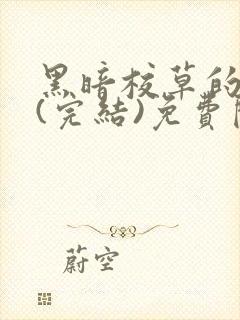 黑暗校草的
(完結)免費
蔚空